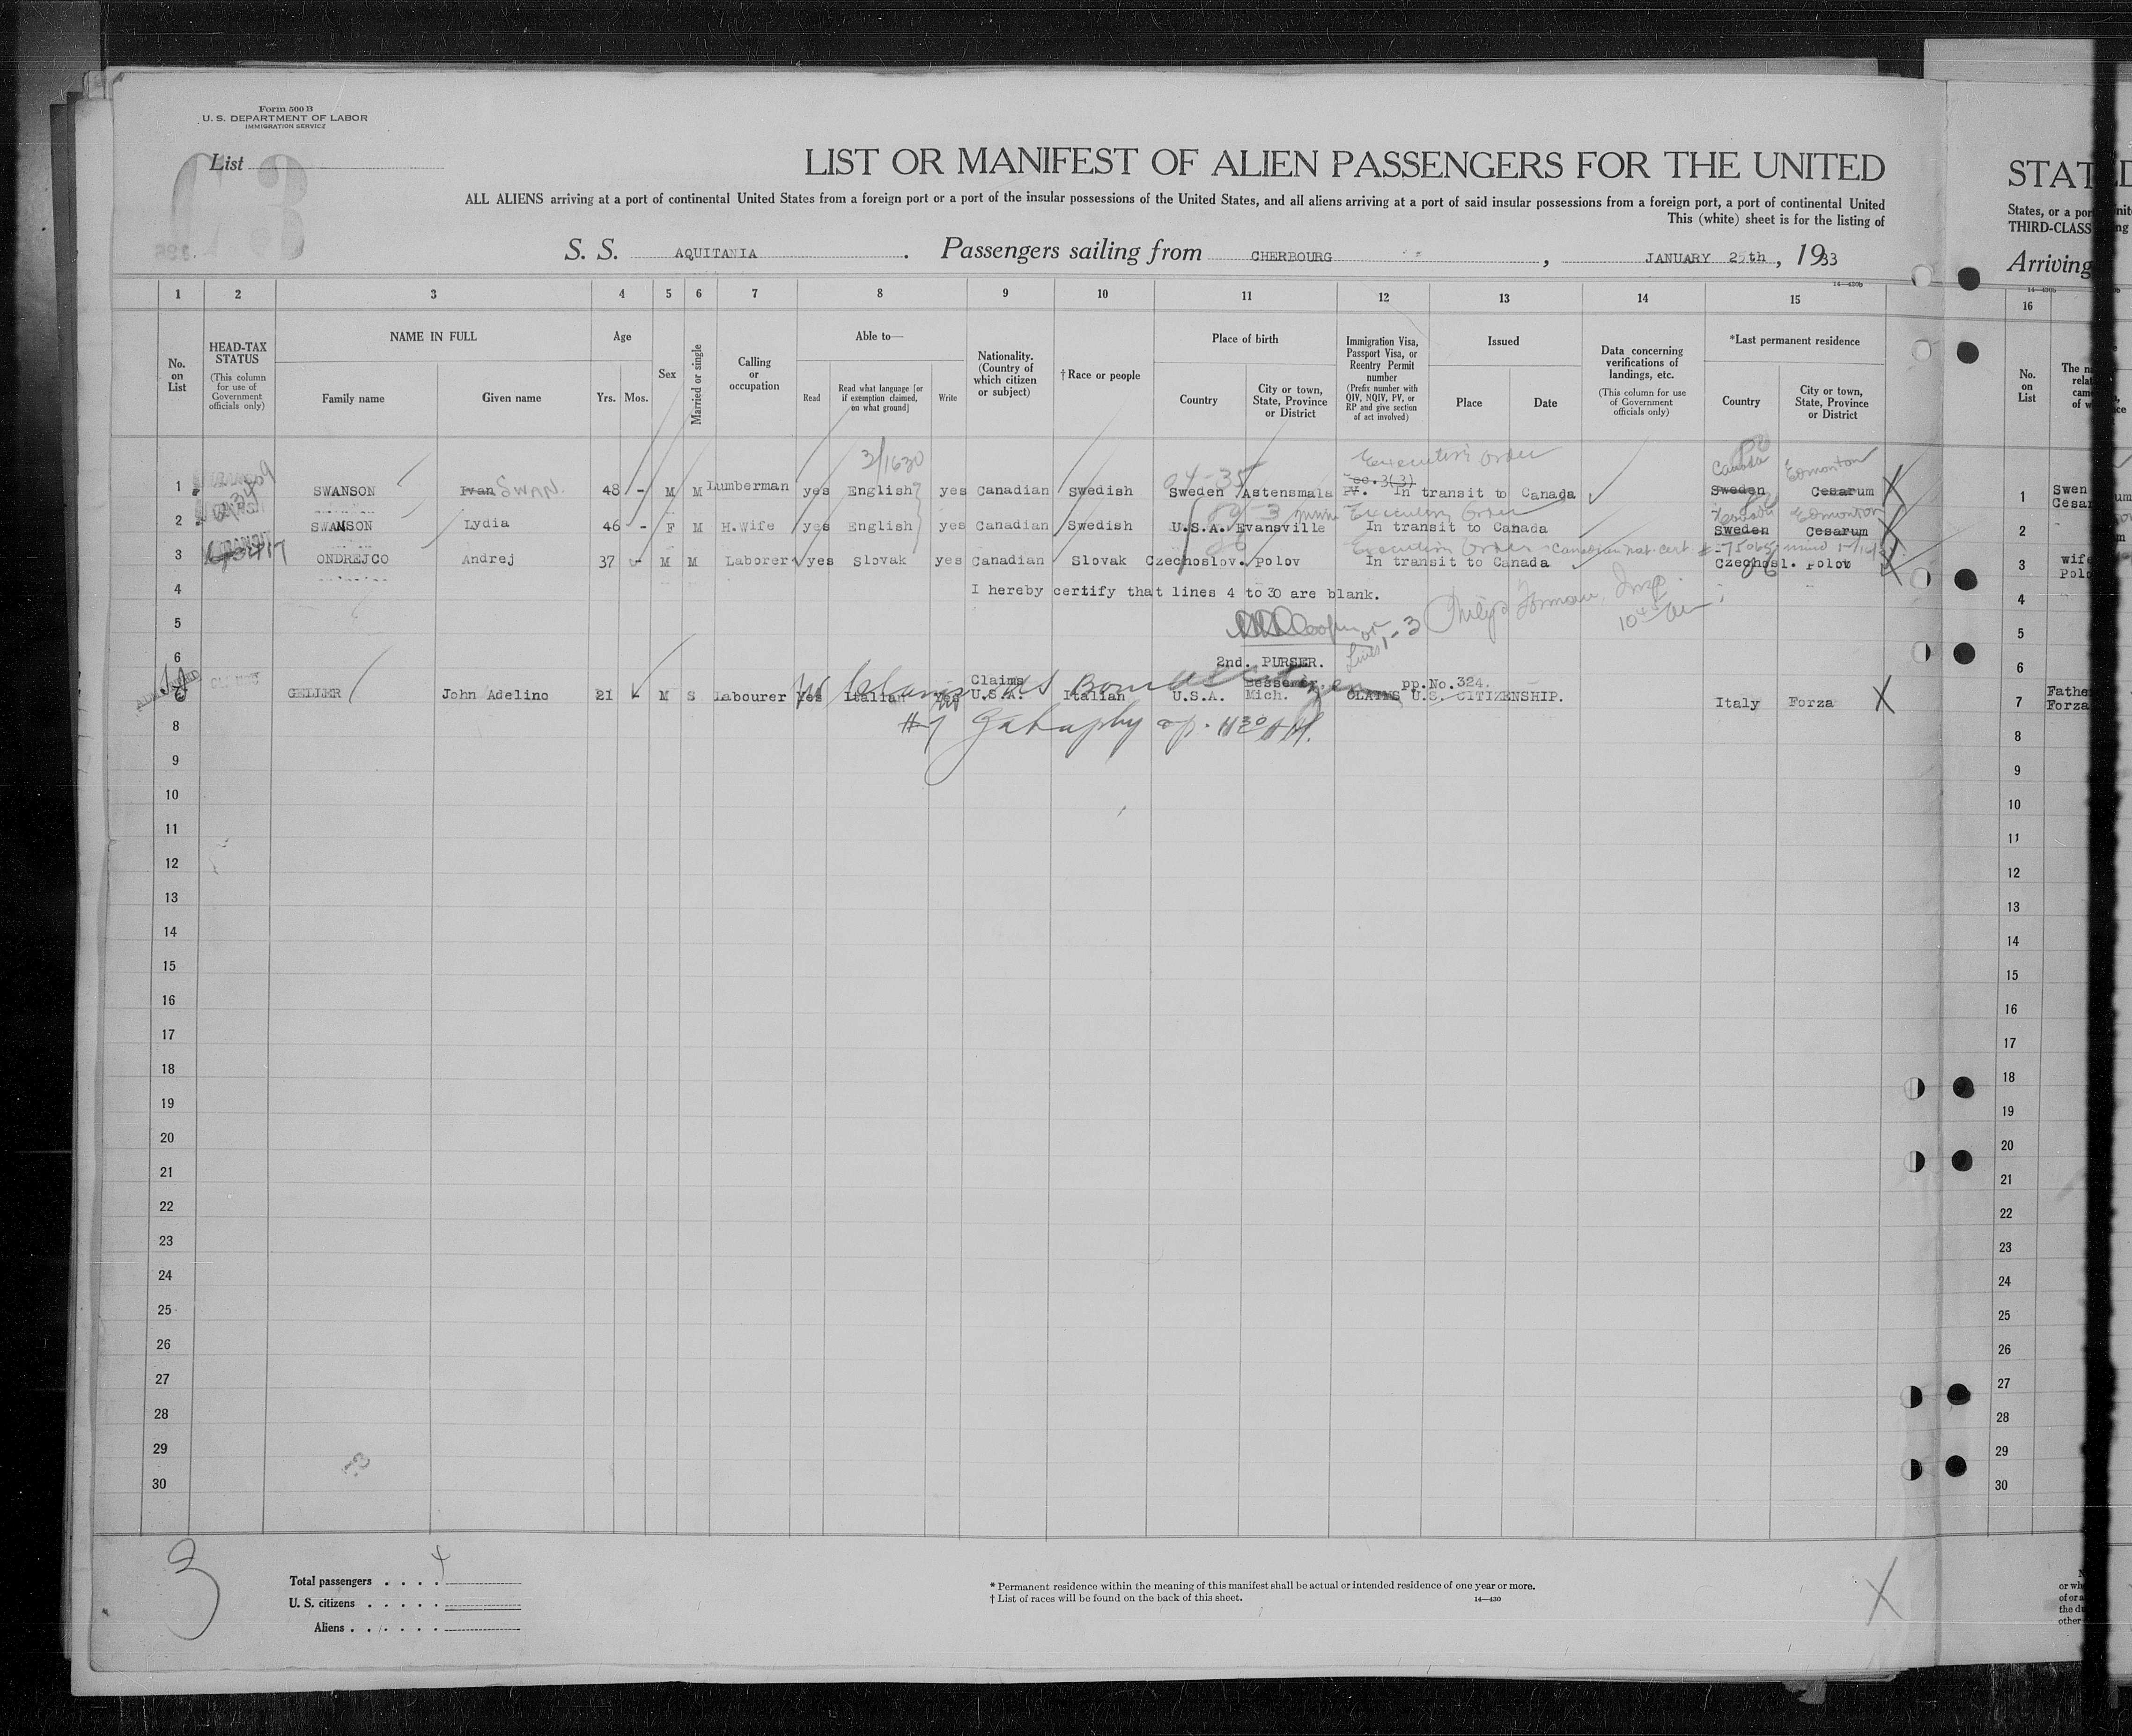 Form 500 B
U. S. DEPARTMENT OF LABOR
IMMIGRATION SERVICE
List
LIST OR MANIFEST OF ALIEN PASSENGERS FOR THE UNITED
STAT
ALL ALIENS arriving at a port of continental United States from a foreign port or a port of the insular possessions of the United States, and all aliens arriving at a port of said insular possessions from a foreign port, a port of continental United
States, or a por
This (white) sheet is for the listing of
THIRD-CLASS
S. S. AQUITANIA. Passengers sailing from CHERBOURG, JANUARY 25th, 1933
Arriving
14—430b
1 2 3 4 5 6 7 8 9 10 11 12 13 14 15
16
No. on List
HEAD-TAX STATUS
(This column for use of Government officials only)
NAME IN FULL
Family name
Given name
Age
Yrs.
Mos.
Sex
Married or single
Calling or occupation
Able to—
Read
Read what language [or if exemption claimed, on what ground]
Write
Nationality. (Country of which citizen or subject)
† Race or people
Place of birth
Country
City or town, State, Province or District
Immigration Visa, Passport Visa, or Reentry Permit number
(Prefix number with QIV, NQIV, PV, or RP and give section of act involved)
Issued
Place
Date
Data concerning verifications of landings, etc.
(This column for use of Government officials only)
*Last permanent residence
Country
City or town, State, Province or District
No. on List
3/1630
Executive Order
Canada Edmonton
1 SWANSON Ivan SWAN. 48 - M M Lumberman yes English yes Canadian Swedish Sweden Astensmala In transit to Canada Sweden Cesarum
1 Swen
Cesar
Executive Order
Canada Edmonton
2 SWANSON Lydia 46 - F M H.Wife yes English yes Canadian Swedish U.S.A. Evansville In transit to Canada Sweden Cesarum
2
Executive Order - Canadian nat. cert.
3 ONDREJCO Andrej 37 - M M Laborer yes Slovak yes Canadian Slovak Czechoslov. Polov In transit to Canada Czechosl. Polov
3 wife
Polo
4 I hereby certify that lines 4 to 30 are blank.
4
5
Lines 1-3
5
6 2nd. PURSER.
6
Claims Bessemer, pp.No.324.
GELLER John Adelino 21 M S Labourer yes Italian yes U.S.A. Italian U.S.A. Mich. CLAIMS U.S. CITIZENSHIP. Italy Forza
7 Fathe
Forza
8
8
9
9
10
10
11
11
12
12
13
13
14
14
15
15
16
16
17
17
18
18
19
19
20
20
21
21
22
22
23
23
24
24
25
25
26
26
27
27
28
28
29
29
30
30
3
Total passengers . . . . 4
U. S. citizens . . . . .
Aliens . . . . . .
* Permanent residence within the meaning of this manifest shall be actual or intended residence of one year or more.
† List of races will be found on the back of this sheet.
14—430